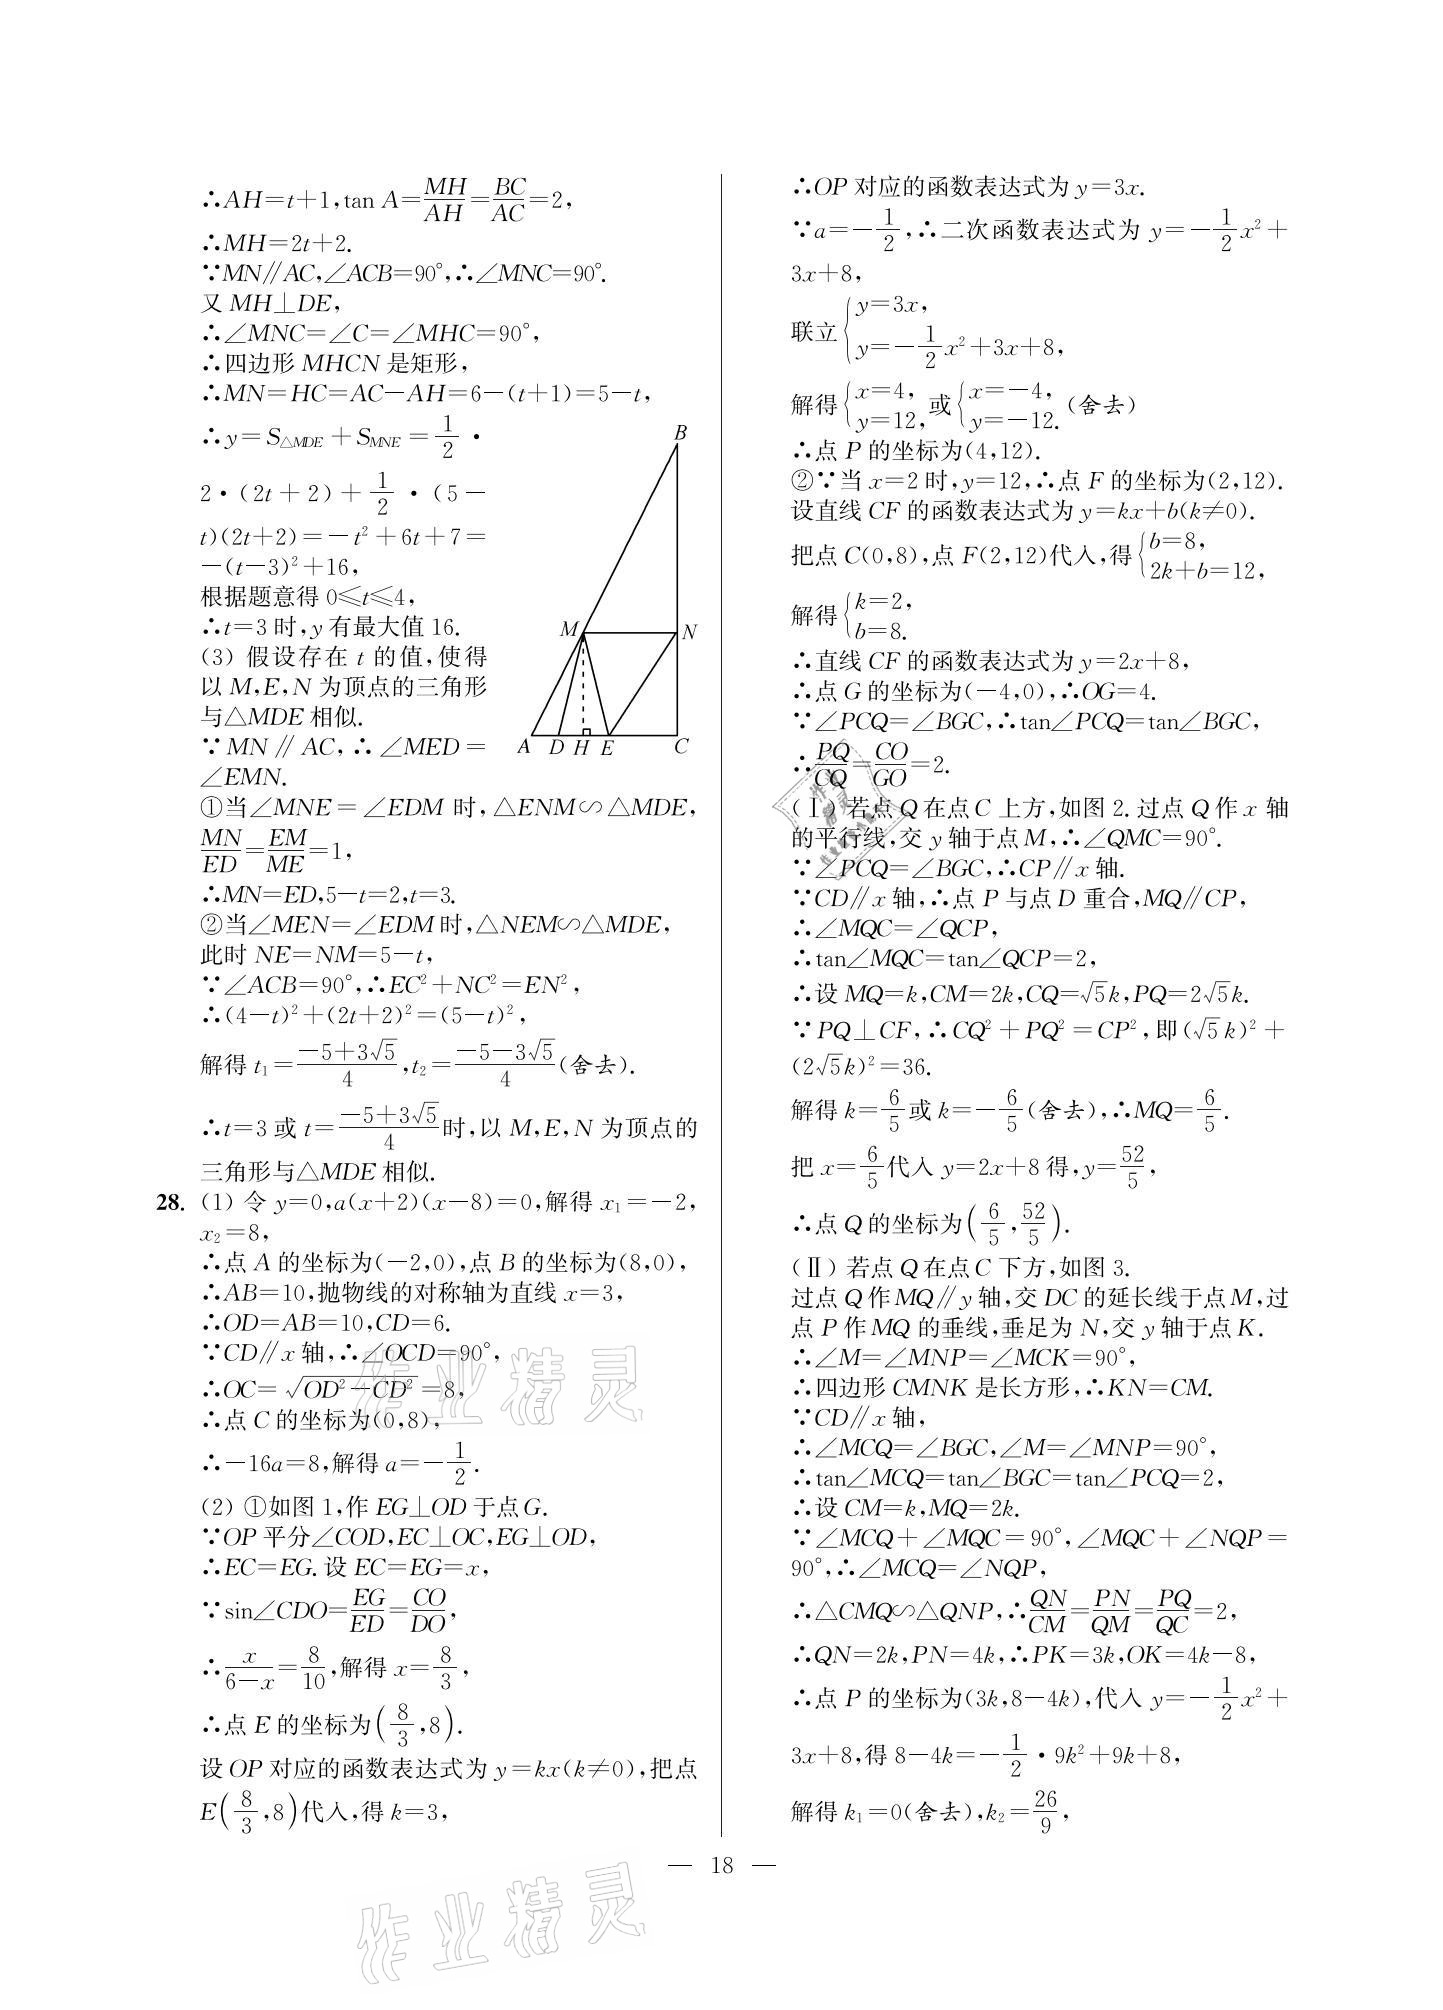 ∴AH=t+1,tan A=MH/AH=BC/AC=2,
∴MH=2t+2.
∵MN∥AC,∠ACB=90°,∴∠MNC=90°.
又 MH⊥DE,
∴∠MNC=∠C=∠MHC=90°,
∴四边形 MHCN 是矩形,
∴MN=HC=AC-AH=6-(t+1)=5-t,
∴y=S△MDE+SMNE=1/2·
2·(2t+2)+1/2·(5-
t)(2t+2)=-t²+6t+7=
-(t-3)²+16,
根据题意得 0≤t≤4,
∴t=3 时,y 有最大值 16.
(3) 假设存在 t 的值,使得
以 M,E,N 为顶点的三角形
与△MDE 相似.
∵MN∥AC,∴∠MED=
∠EMN.
B
M
N
A D H E C
①当∠MNE=∠EDM 时,△ENM∽△MDE,
MN/ED=EM/ME=1,
∴MN=ED,5-t=2,t=3.
②当∠MEN=∠EDM 时,△NEM∽△MDE,
此时 NE=NM=5-t,
∵∠ACB=90°,∴EC²+NC²=EN²,
∴(4-t)²+(2t+2)²=(5-t)²,
解得 t₁=(-5+3√5)/4,t₂=(-5-3√5)/4(舍去).
∴t=3 或 t=(-5+3√5)/4时,以 M,E,N 为顶点的
三角形与△MDE 相似.
28. (1) 令 y=0,a(x+2)(x-8)=0,解得 x₁=-2,
x₂=8,
∴点 A 的坐标为(-2,0),点 B 的坐标为(8,0),
∴AB=10,抛物线的对称轴为直线 x=3,
∴OD=AB=10,CD=6.
∵CD∥x 轴,∴∠OCD=90°,
∴OC=√(OD²-CD²)=8,
∴点 C 的坐标为(0,8),
∴-16a=8,解得 a=-1/2.
(2) ①如图 1,作 EG⊥OD 于点 G.
∵OP 平分∠COD,EC⊥OC,EG⊥OD,
∴EC=EG. 设 EC=EG=x,
∵sin∠CDO=EG/ED=CO/DO,
∴x/(6-x)=8/10,解得 x=8/3,
∴点 E 的坐标为(8/3,8).
设 OP 对应的函数表达式为 y=kx(k≠0),把点
E(8/3,8)代入,得 k=3,
∴OP 对应的函数表达式为 y=3x.
∵a=-1/2,∴二次函数表达式为 y=-1/2x²+
3x+8,
联立{y=3x,
y=-1/2x²+3x+8,
解得{x=4, y=12,或{x=-4, y=-12.(舍去)
∴点 P 的坐标为(4,12).
②∵当 x=2 时,y=12,∴点 F 的坐标为(2,12).
设直线 CF 的函数表达式为 y=kx+b(k≠0).
把点 C(0,8),点 F(2,12)代入,得{b=8, 2k+b=12,
解得{k=2, b=8.
∴直线 CF 的函数表达式为 y=2x+8,
∴点 G 的坐标为(-4,0),∴OG=4.
∵∠PCQ=∠BGC,∴tan∠PCQ=tan∠BGC,
∴PQ/CQ=CO/GO=2.
(Ⅰ) 若点 Q 在点 C 上方,如图 2. 过点 Q 作 x 轴
的平行线,交 y 轴于点 M,∴∠QMC=90°.
∵∠PCQ=∠BGC,∴CP∥x 轴.
∵CD∥x 轴,∴点 P 与点 D 重合,MQ∥CP,
∴∠MQC=∠QCP,
∴tan∠MQC=tan∠QCP=2,
∴设 MQ=k,CM=2k,CQ=√5k,PQ=2√5k.
∵PQ⊥CF,∴CQ²+PQ²=CP²,即(√5k)²+
(2√5k)²=36.
解得 k=6/5或 k=-6/5(舍去),∴MQ=6/5.
把 x=6/5代入 y=2x+8 得,y=52/5,
∴点 Q 的坐标为(6/5,52/5).
(Ⅱ) 若点 Q 在点 C 下方,如图 3.
过点 Q 作 MQ∥y 轴,交 DC 的延长线于点 M,过
点 P 作 MQ 的垂线,垂足为 N,交 y 轴于点 K.
∴∠M=∠MNP=∠MCK=90°,
∴四边形 CMNK 是长方形,∴KN=CM.
∵CD∥x 轴,
∴∠MCQ=∠BGC,∠M=∠MNP=90°,
∴tan∠MCQ=tan∠BGC=tan∠PCQ=2,
∴设 CM=k,MQ=2k.
∵∠MCQ+∠MQC=90°,∠MQC+∠NQP=
90°,∴∠MCQ=∠NQP,
∴△CMQ∽△QNP,∴QN/CM=PN/QM=PQ/QC=2,
∴QN=2k,PN=4k,∴PK=3k,OK=4k-8,
∴点 P 的坐标为(3k,8-4k),代入 y=-1/2x²+
3x+8,得 8-4k=-1/2·9k²+9k+8,
解得 k₁=0(舍去),k₂=26/9,
— 18 —
作业精灵
作业精灵